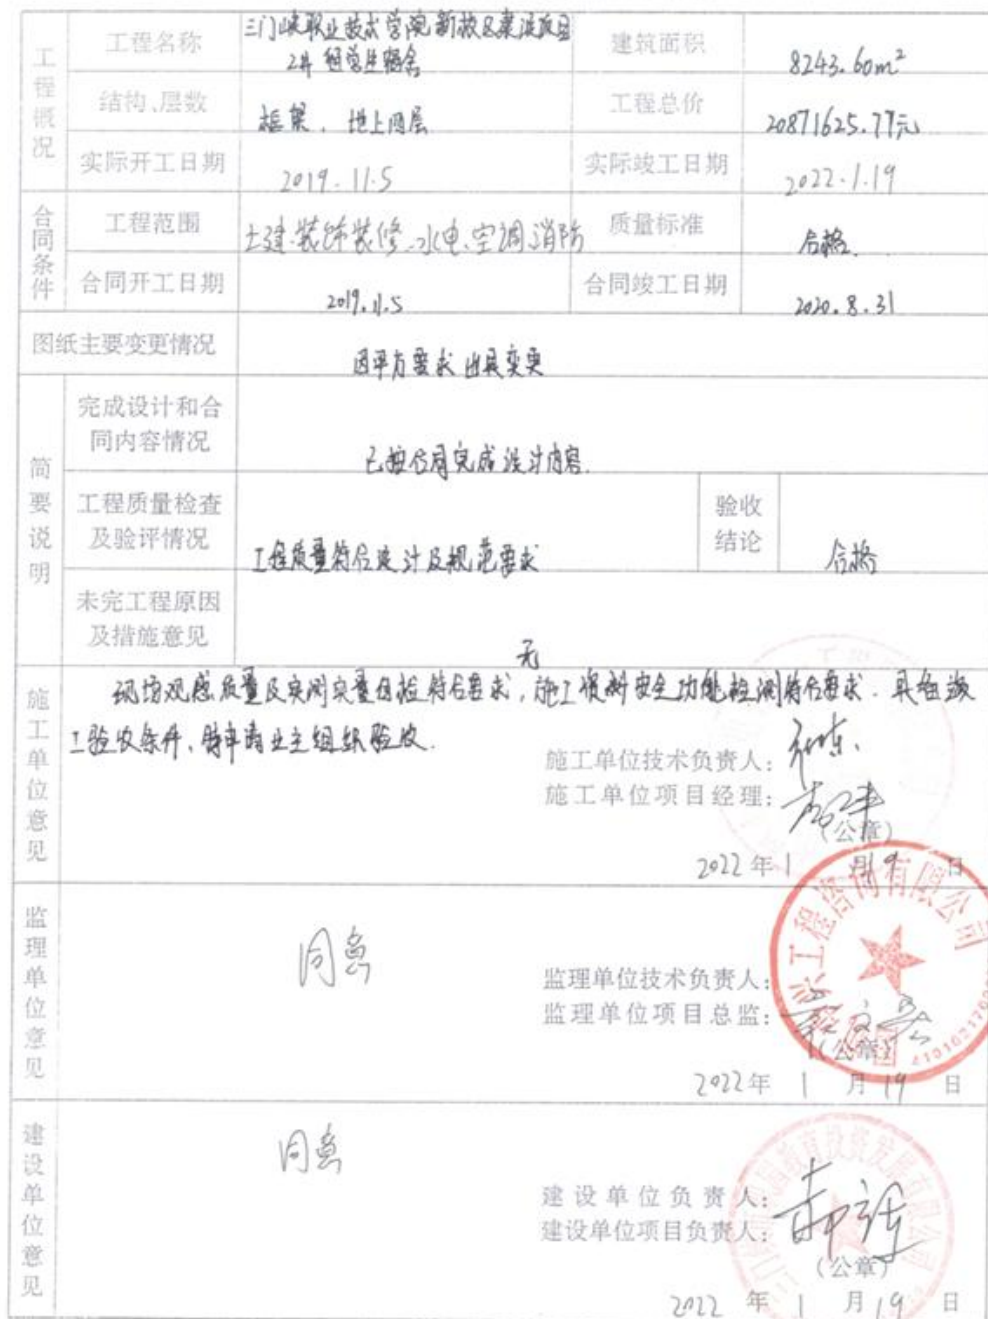 工程概况
工程名称
三门峡职业技术学院新校区建设项目
2# 组学生宿舍
建筑面积
8243.60m²
结构、层数
框架、地上四层
工程总价
20871625.77元
实际开工日期
2019.11.5
实际竣工日期
2022.1.19
合同条件
工程范围
土建.装饰装修.水电.空调.消防
质量标准
合格.
合同开工日期
2019.11.5
合同竣工日期
2020.8.31
图纸主要变更情况
因甲方要求 出具变更
简要说明
完成设计和合
同内容情况
已按合同完成设计内容.
工程质量检查
及验评情况
工程质量符合设计及规范要求
验收
结论
合格
未完工程原因
及措施意见
无
施工单位意见
现场观感质量及实测实量自检符合要求,施工资料安全功能检测符合要求.具备竣
工验收条件,特申请业主组织验收.
施工单位技术负责人:
施工单位项目经理:
(公章)
2022年1月19日
监理单位意见
同意
监理单位技术负责人:
监理单位项目总监:
(公章)
2022年1月19日
工程咨询有限公司
建设单位意见
同意
建设单位负责人:
建设单位项目负责人:
(公章)
2022年1月19日